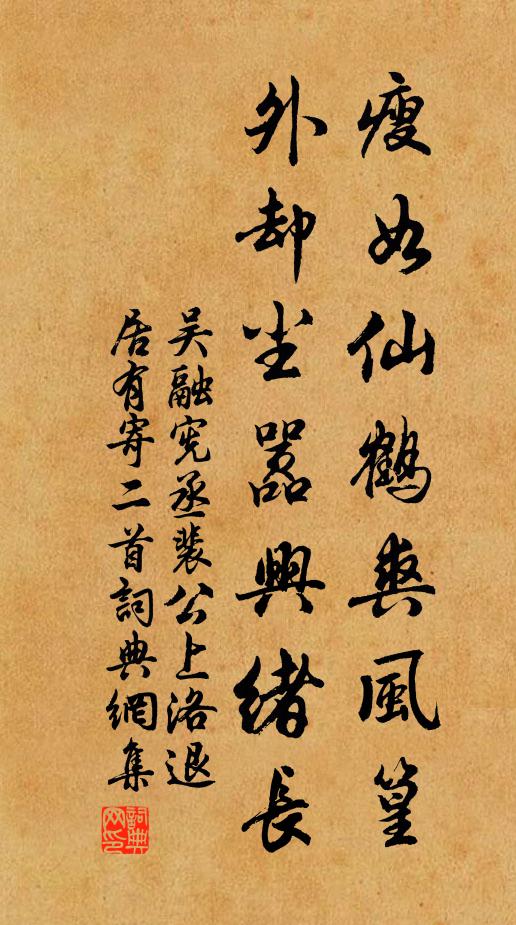 瘦如仙鶴爽風篁
外却尘嚣興緒長
吴融憲丞裴公上洛退
居有寄二首詞典網集
詞典网印